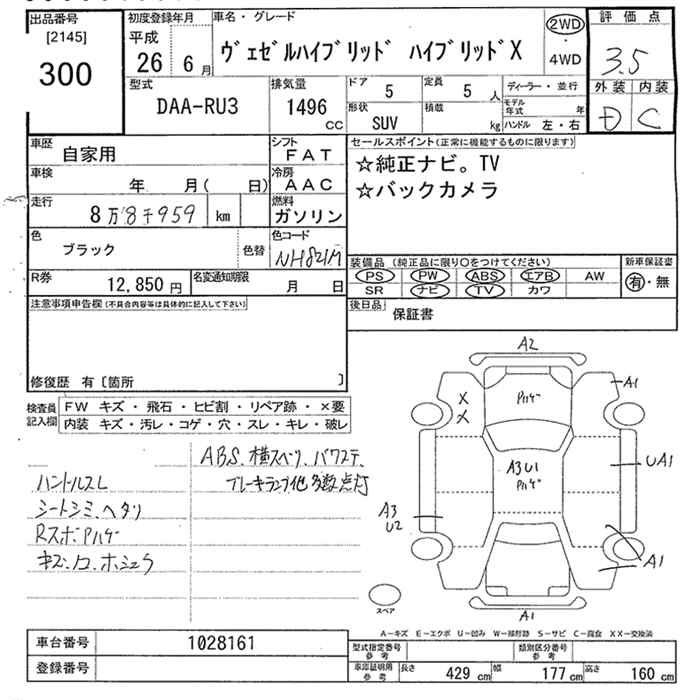 出品番号
[2145]
300
初度登録年月
平成
26 6月
車名・グレード
ヴェゼルハイブリッド ハイブリッドX
2WD
・
4WD
評価点
3.5
外装 内装
D C
型式
DAA-RU3
排気量
1496
CC
ドア
5
定員
5 人
形状
SUV
積載
kg
ディーラー・並行
モデル年式 年
ハンドル 左・右
車歴
自家用
シフト
FAT
車検
年 月( 日)
冷房
AAC
走行
8万8千959 km
燃料
ガソリン
色
ブラック
色替
色コード
NH821M
R券
12,850 円
名変通知期限
月 日
セールスポイント(正常に機能するものに限ります)
☆純正ナビ。TV
☆バックカメラ
装備品(純正品に限り○をつけてください)
PS PW ABS エアB AW
SR ナビ TV カワ
新車保証書
有・無
後日品
保証書
注意事項申告欄(不具合内容等は具体的に記入して下さい)
修復歴 有〔箇所 〕
検査員
記入欄
FW キズ・飛石・ヒビ割・リペア跡・×要
内装 キズ・汚レ・コゲ・穴・スレ・キレ・破レ
ABS、横スベリ、パワステ、
ハンドルスレ
ブレーキランプ他多数点灯
シートシミ、ヘタリ
RスポPハゲ
A2
A1
X
X
Pハゲ
UA1
A3U1
Pハゲ
A3
U2
A1
A1
スペア
A-キズ E-エクボ U-凹み W-補修跡 S-サビ C-腐食 XX-交換済
車台番号
1028161
登録番号
型式指定番号
参考
類別区分番号
参考
車庫証明用
参考
長さ 429 cm 幅 177 cm 高さ 160 cm